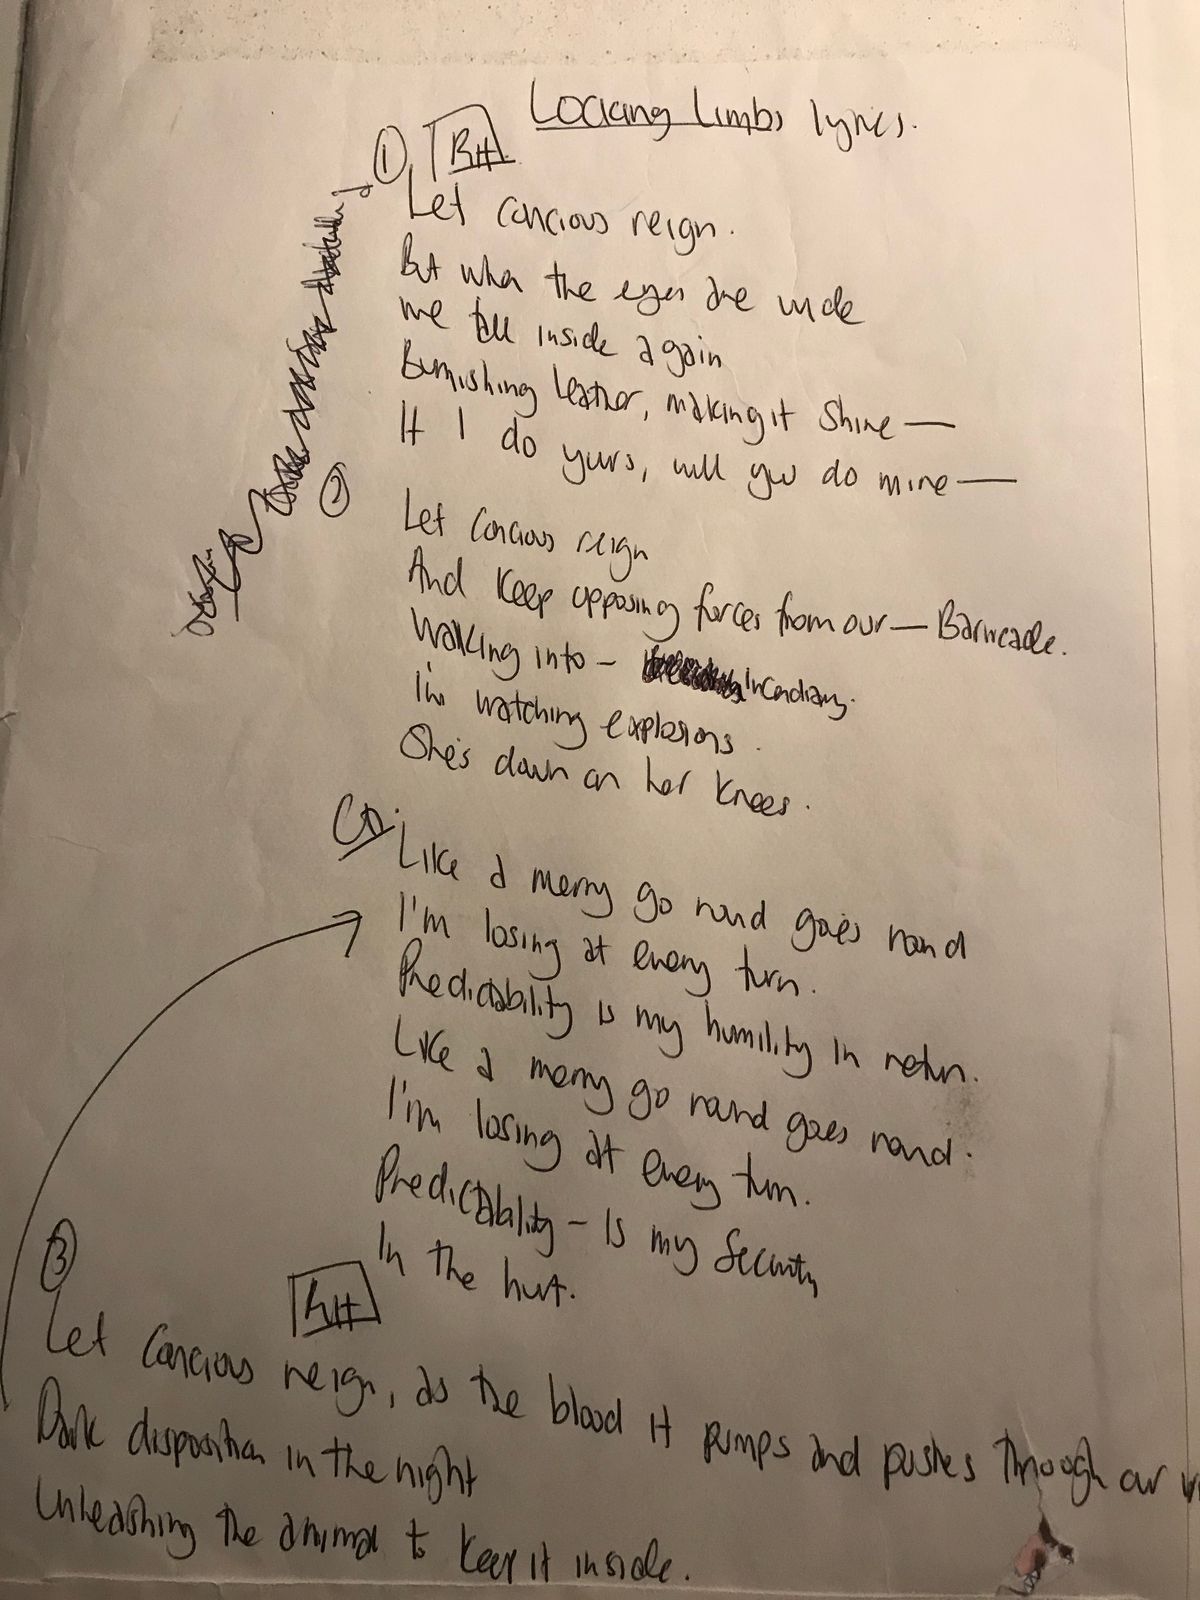 Locking Limbs lyrics.
① RH
Let concious reign.
But when the eyes are wide
we fall inside again
Burnishing leather, making it shine —
If I do yours, will you do mine —
②
Let concious reign
And keep opposing forces from our — Barricade.
Walking into — incendiary.
I'm watching explosions.
She's down on her knees.
Ch.
Like a merry go round goes round
I'm losing at every turn.
Predictability is my humility in return.
Like a merry go round goes round.
I'm losing at every turn.
Predictability — is my security
In the hurt.
③
Let concious reign, as the blood it pumps and pushes through our
Dark disposition in the night
Unleashing the animal to keep it inside.